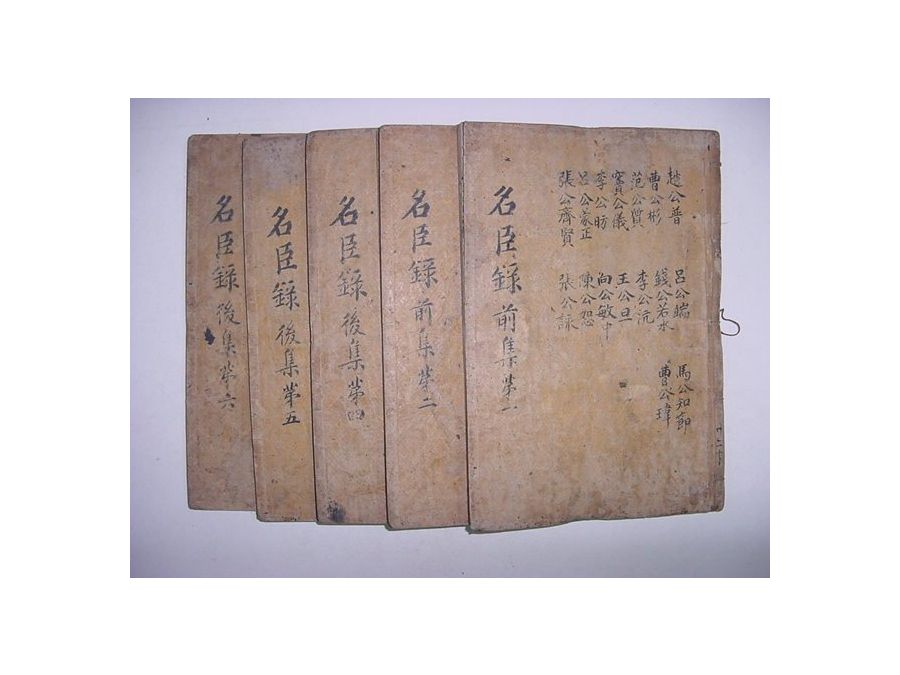 趙公普
曹公彬
范公質
竇公儀
李公昉
呂公蒙正
張公齊賢
呂公端
錢公若水
李公沆
王公旦
向公敏中
陳公恕
張公詠
馬公知節
曹公瑋
名臣錄 前集 第一
名臣錄 前集 第二
名臣錄 後集 第四
名臣錄 後集 第五
名臣錄 後集 第六